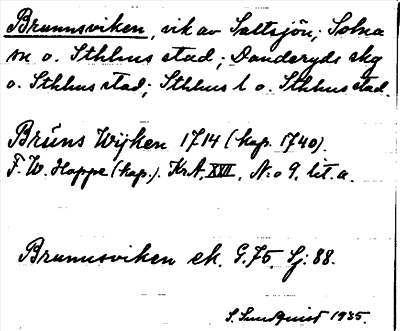 Brunnsviken, vik av Saltsjön; Solna
sn o. Sthlms stad; Danderyds skg
o. Sthlms stad; Sthlms l o. Sthlms stad.
Brüns Wijken 1714 (kop. 1740).
F. W. Hoppe (kop.). KrA, XVII, N:o 9, lit. a.
Brunnsviken ek. G. 75. Sj: 88.
S. Sundquist 1935.